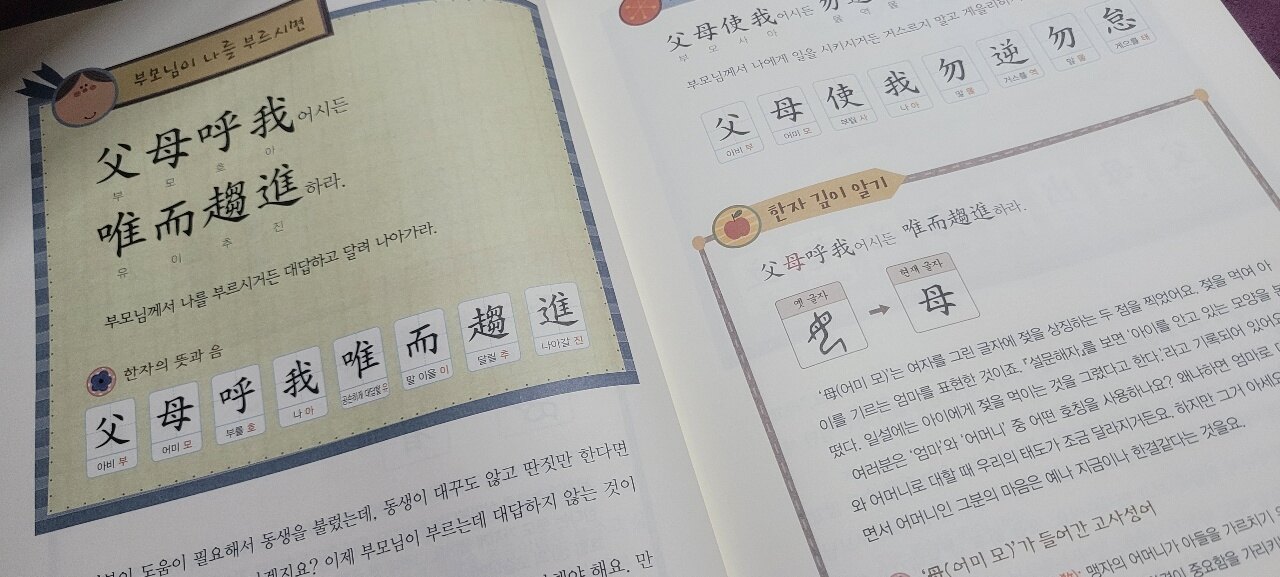 부모님이 나를 부르시면
父母呼我어시든
부 모 호 아
唯而趨進하라.
유 이 추 진
부모님께서 나를 부르시거든 대답하고 달려 나아가라.
한자의 뜻과 음
父 母 呼 我 唯 而 趨 進
아비 부 어미 모 부를 호 나 아 공손하게 대답할 유 말 이을 이 달릴 추 나아갈 진
도움이 필요해서 동생을 불렀는데, 동생이 대꾸도 않고 딴짓만 한다면
이제 부모님이 부르는데 대답하지 않는 것이
해요. 만
父母使我어시든
부 모 사 아 물 역 물
부모님께서 나에게 일을 시키시거든 거스르지 말고 게을리하지
父 母 使 我 勿 逆 勿 怠
아비 부 어미 모 부릴 사 나 아 말 물 거스를 역 말 물 게으를 태
한자 깊이 알기
父母呼我어시든 唯而趨進하라.
옛 글자 현재 글자
母
'母(어미 모)'는 여자를 그린 글자에 젖을 상징하는 두 점을 찍었어요. 젖을 먹여 아
이를 기르는 엄마를 표현한 것이죠. 『설문해자』를 보면 '아이를 안고 있는 모양을 본
떴다. 일설에는 아이에게 젖을 먹이는 것을 그렸다고 한다.'라고 기록되어 있어요
여러분은 '엄마'와 '어머니' 중 어떤 호칭을 사용하나요? 왜냐하면 엄마로 대
와 어머니로 대할 때 우리의 태도가 조금 달라지거든요. 하지만 그거 아세요
면서 어머니인 그분의 마음은 예나 지금이나 한결같다는 것을요.
'母(어미 모)'가 들어간 고사성어
맹자의 어머니가 아들을 가르치기 위
중요함을 가리키